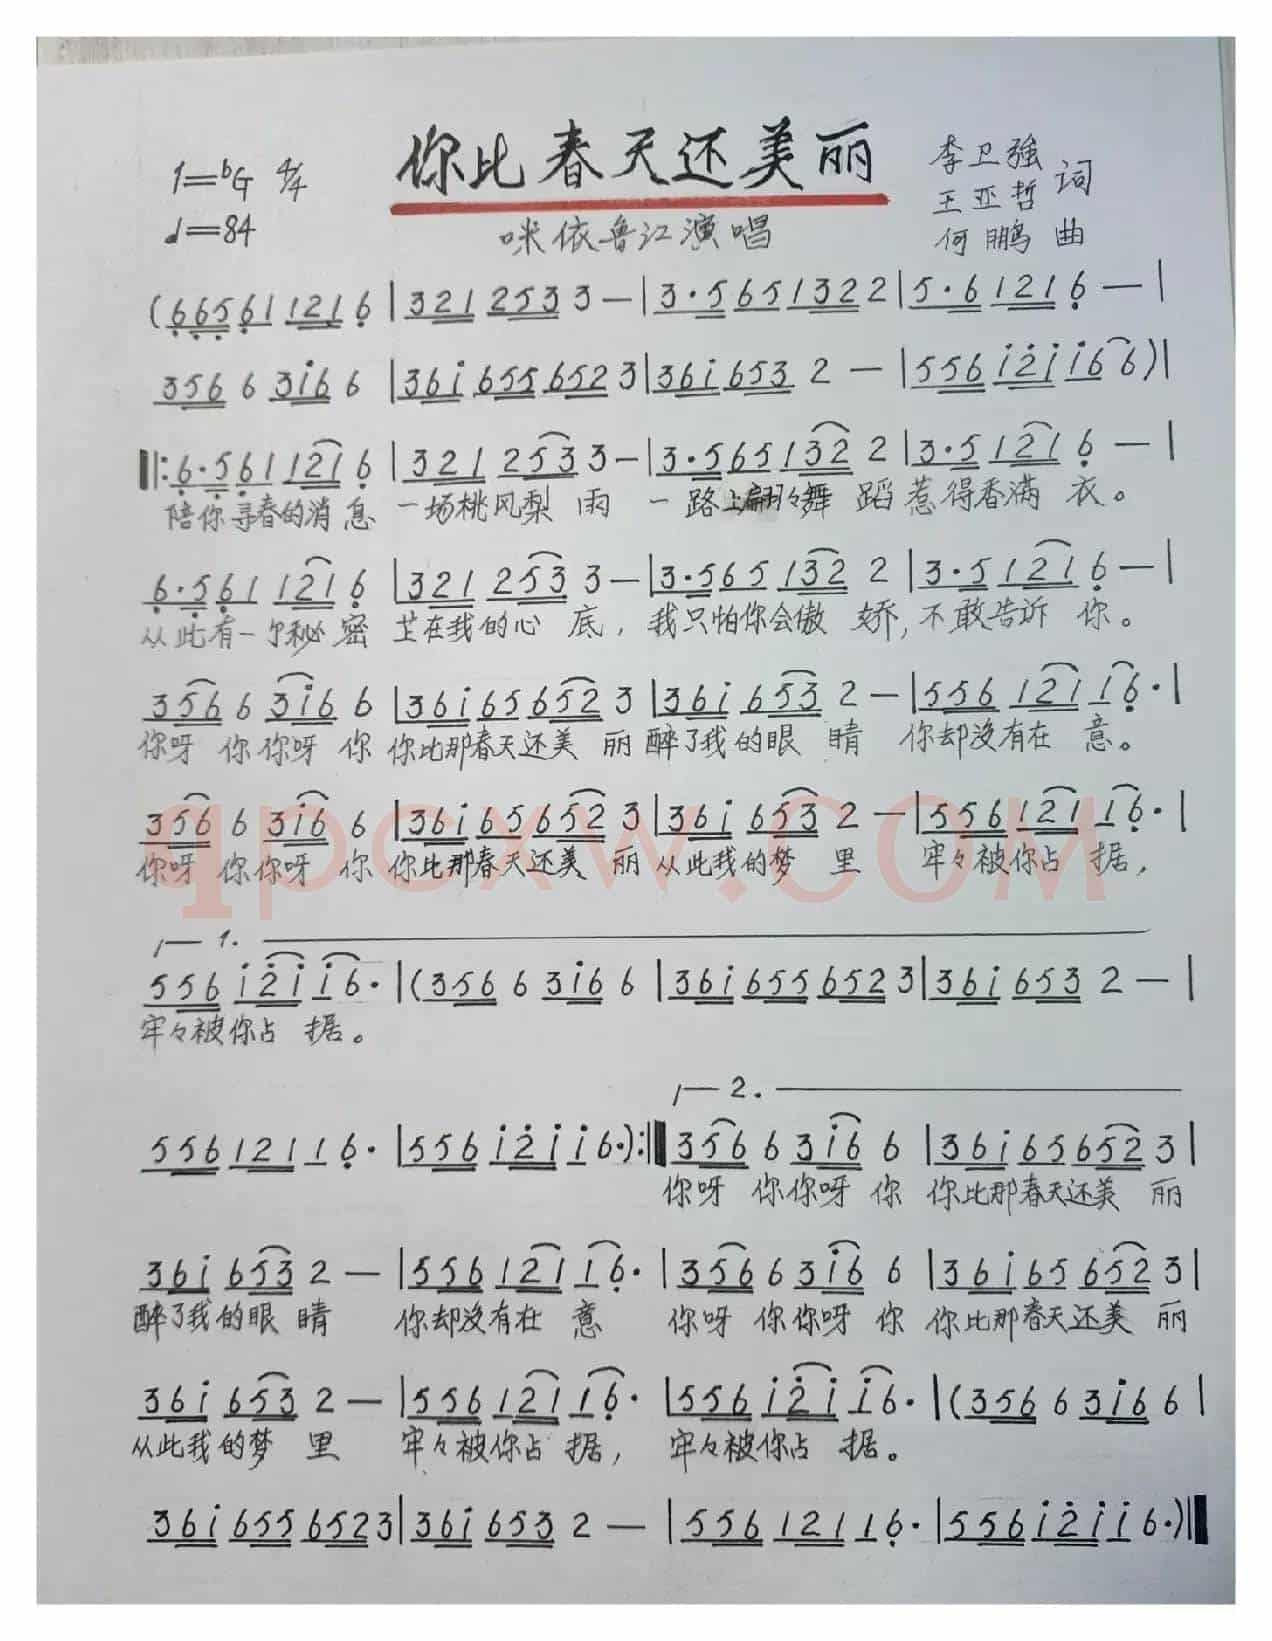 你比春天还美丽
1=ᵇG 4/4
♩=84
李卫强
王亚哲 词
何鹏 曲
咪依鲁江演唱
(6̣6̣5̣6̣1 1216̣ |321 2533 — |3·5651322 2 |5·6 1216̣ — |
356 6 3i̇6 6 |36i̇ 6556523 |36i̇ 653 2 — |556 i̇2̇i̇ i̇66) |
‖:6̣·5̣6̣1 1216̣ |321 2533 — |3·565132 2 |3·5 1216̣ — |
陪你寻春的消息 一场桃风梨 雨 一路上翩々舞 蹈惹得香满 衣。
6̣·5̣6̣1 1216̣ |321 2533 — |3·565132 2 |3·5 1216̣ — |
从此有一个秘密 芷在我的心 底，我只怕你会傲 娇，不敢告诉 你。
356 6 3i̇6 6 |36i̇ 656523 |36i̇ 653 2 — |556 121 16̣· |
你呀 你你呀 你 你比那春天还美 丽 醉了我的眼 睛 你却没有在 意。
356 6 3i̇6 6 |36i̇ 6565 2 3 |36i̇ 653 2 — |556 121 16̣· |
你呀 你你呀 你 你比那春天还美 丽 从此我的梦 里 牢々被你占 据，
qpcxw.COM
1.
556 i̇2̇i̇ i̇6· |(356 6 3i̇6 6 |36i̇ 6556523 |36i̇ 653 2 — |
牢々被你占 据。
2.
556 121 16̣· |556 i̇2̇i̇ i̇6·):‖ 356 6 3i̇6 6 |36i̇ 656523 |
你呀 你你呀 你 你比那春天还美 丽
36i̇ 653 2 — |556 121 16̣· |356 6 3i̇6 6 |36i̇ 656523 |
醉了我的眼 睛 你却没有在 意 你呀 你你呀 你 你比那春天还美 丽
36i̇ 653 2 — |556 121 16̣· |556 i̇2̇i̇ i̇6· |(356 6 3i̇6 6 |
从此我的梦 里 牢々被你占 据， 牢々被你占 据。
36i̇ 6556523 |36i̇ 653 2 — |556 121 16̣· |556 i̇2̇i̇ i̇6·)‖